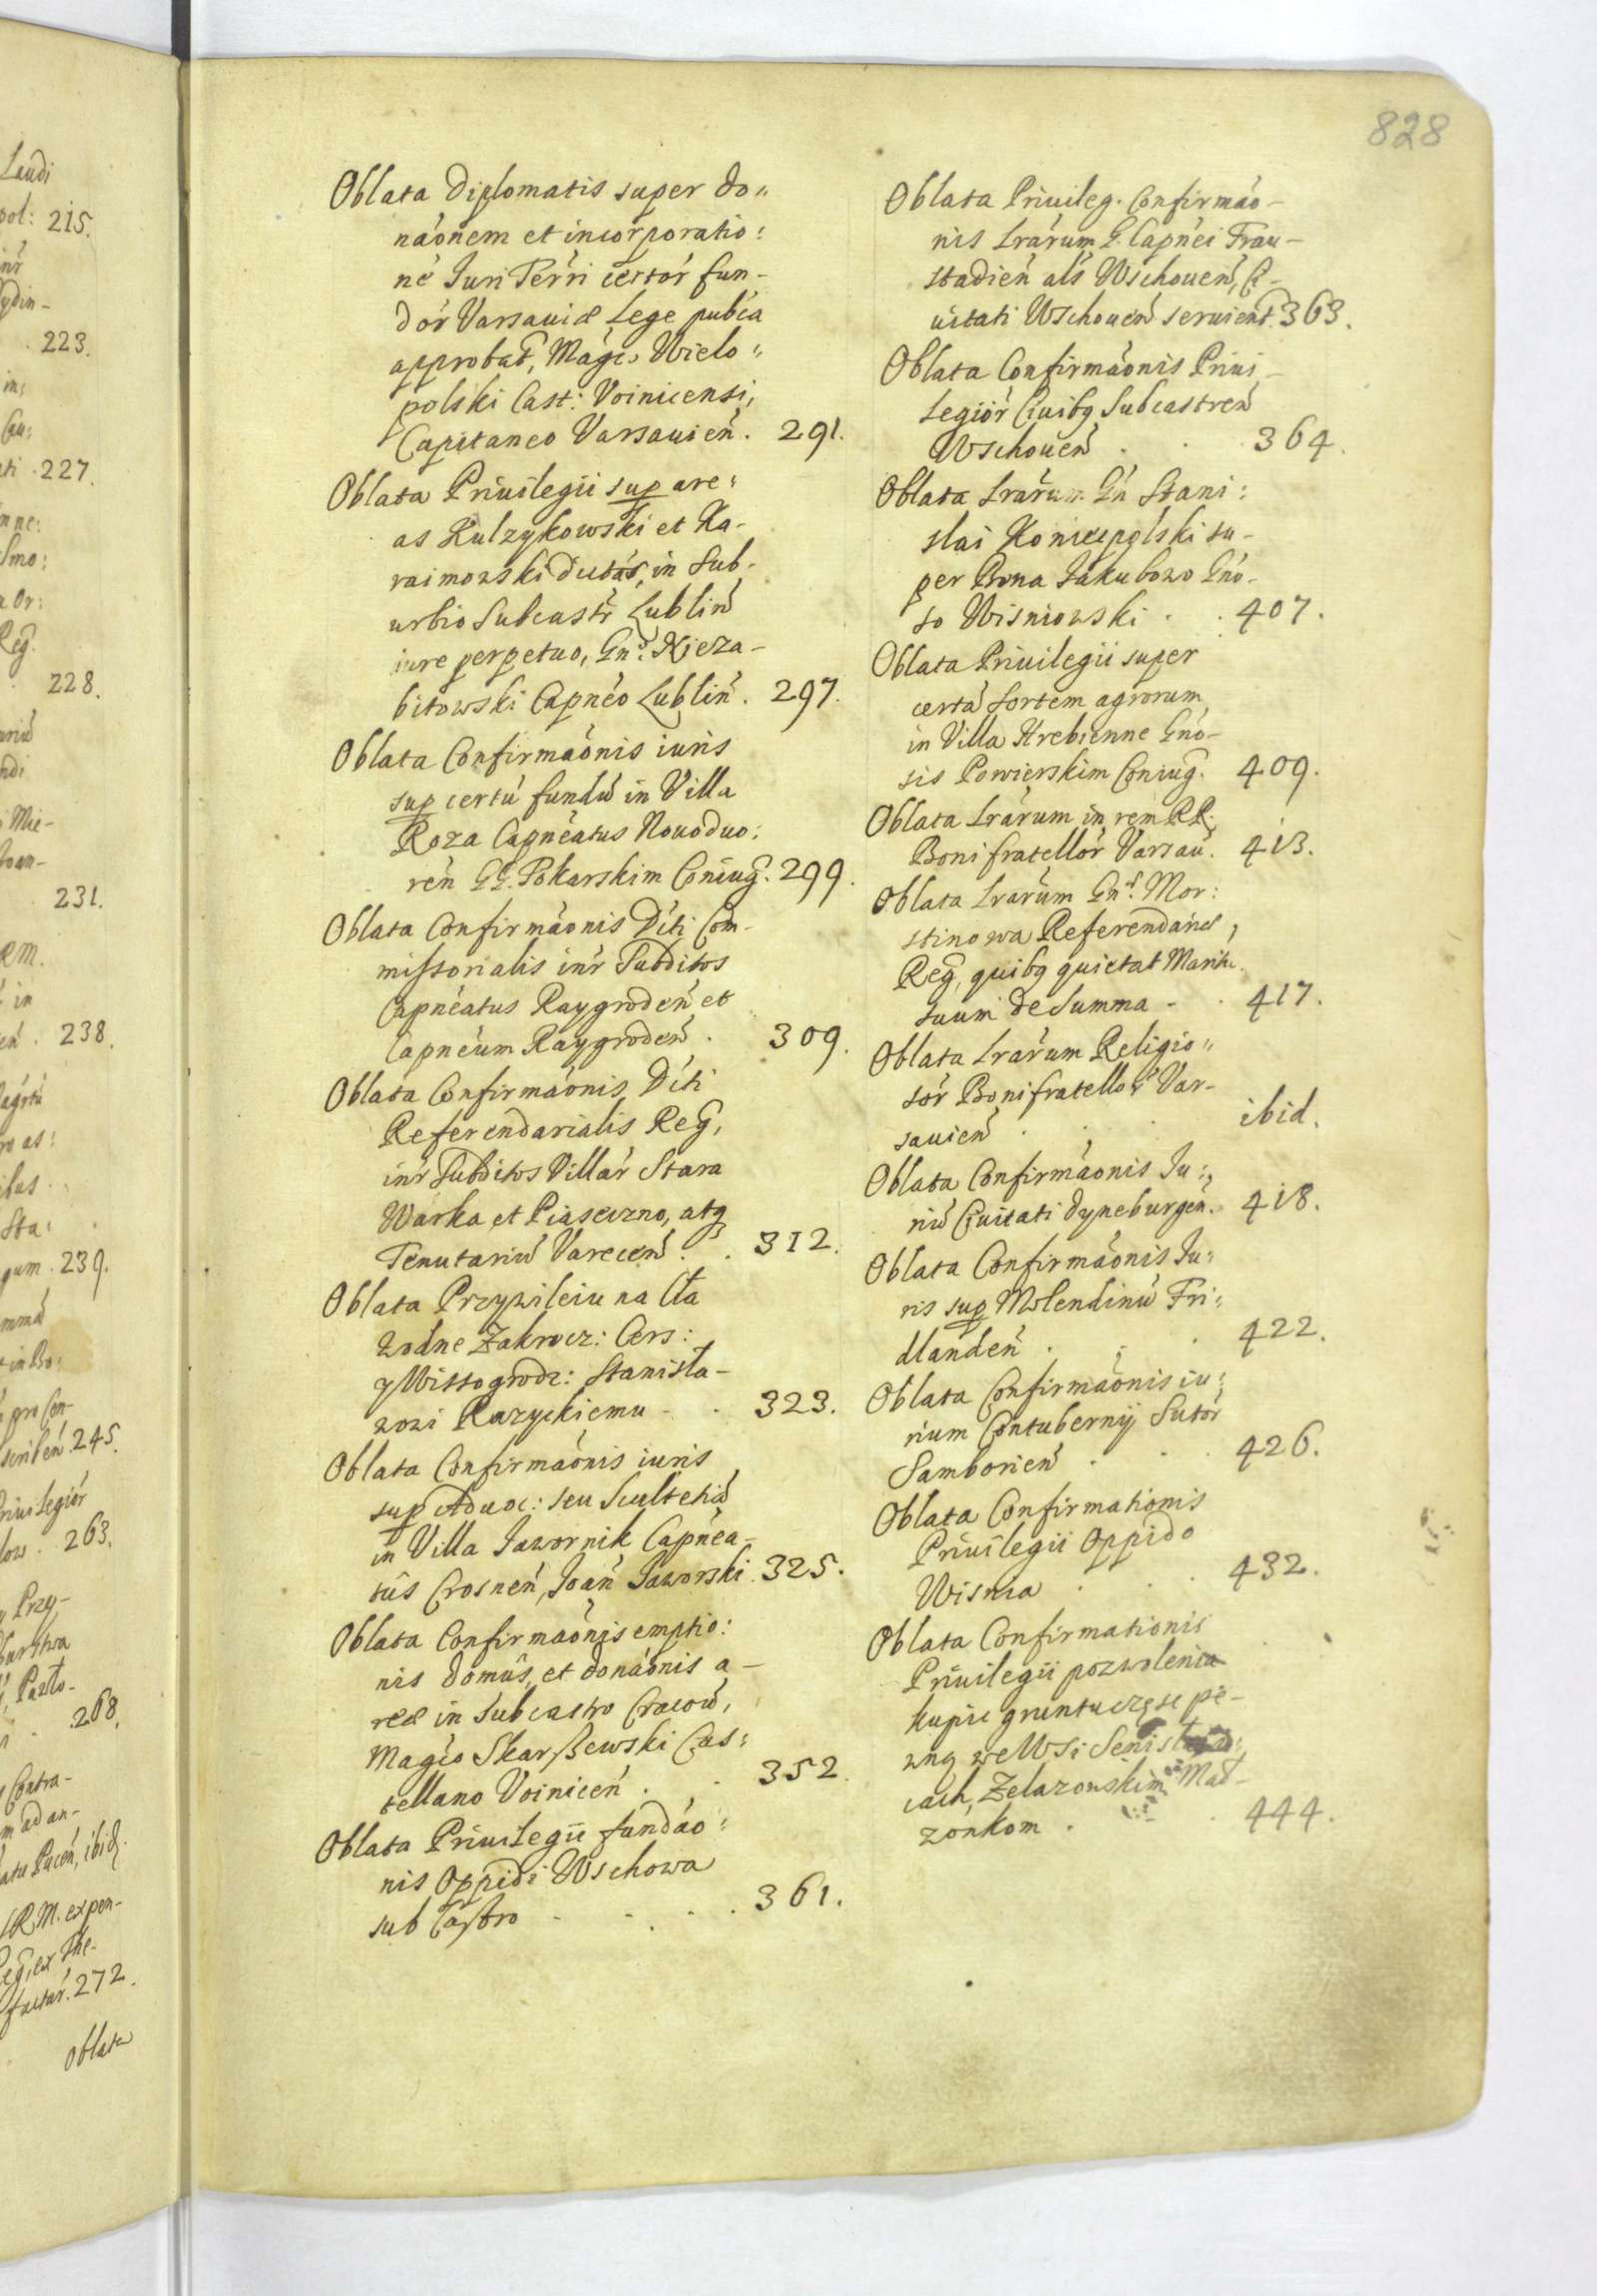 828
Laudi
pol: 215.
223.
227.
228.
231.
238.
239.
245.
263.
268.
272.
Oblata
Oblata Diplomatis super do„
náonem et incorporatio:
né Juri Terri certór fun-
dór Varsauiæ Lege pubca
approbat, Magco Wielo„
polski Cast: Voinicensi,
Capitaneo Varsauień. 291.
Oblata Priuilegii sup are:
as Kulzykowski et Ka-
raimowski dictas, in Sub-
urbio Subcastr Lubliń
iure perpetuo, Gnd. Nieza-
bitowski Capnéo Lubliń. 297.
Oblata Confirmáonis iuris
sup certú fundú in Villa
Roza Capnéatus Nouoduo:
reń GG. Pokarskim Coniug. 299.
Oblata Confirmáonis Dcti Com-
missorialis intr Subditos
Capnéatus Raygrodeń et
Capnéum Raygrodeń. 309.
Oblata Confirmáonis Dcti
Referendarialis Reg,
intr Subditos Villár Stara
Warka et Piaseczno, atq
Tenutariú Vareceń. . 312.
Oblata Przywileiu na Cła
wodne Zakrocz: Cers:
y Wissogrodz: Stanisła-
wowi Razyckiemu - . 323.
Oblata Confirmáonis iuris
sup Aduoc: seu Scultetiá
in Villa Jawornik Capnéa-
tûs Crosneń, Joań Jaworski. 325.
Oblata Confirmáonis emptio:
nis domûs, et donáonis a-
reæ in Subcastro Cracoú,
Magco Skarszewski Cas:
tellano Voiniceń . . 352.
Oblata Priuilegii fundáo:
nis Oppidi Wschowa
sub Castro - - . . 361.
Oblata Priuileg. Confirmáo-
nis Lrarum G. Capnéi Frau-
stadień als Wschoueń, Ci-
uitati Wschoueń seruient. 363.
Oblata Confirmáonis Priui-
legiór Ciuibq Subcastreń
Wschoueń . . . 364.
Oblata Lrarum Gń Stani:
slai Koniecpolski su-
per Bona Jakubowo Gno-
so Wisniowski . . 407.
Oblata Priuilegii super
certá sortem agrorum
in Villa Krebienne Gno-
sis Powierskim Coniug. 409.
Oblata Lrarum in rem RR.
Bonifratellór Varsau. 413.
Oblata Lrarum Gnd. Mor:
stinowa Referendariæ
Reg, quibq quietat Maritu
suum de Summa - . 417.
Oblata Lrarum Religio„
sór Bonifratellór Var-
sauień . . . ibid.
Oblata Confirmáonis Ju:
riú Ciuitati Dyneburgeń. 418.
Oblata Confirmáonis Ju:
ris sup Molendinú Fri:
dlandeń . . . 422.
Oblata Confirmáonis iu:
rium Contubernij Sutór
Samborień . . . 426.
Oblata Confirmationis
Priuilegii Oppido
Wisnia . . . 432.
Oblata Confirmationis
Priuilegii pozwolenia
kupic gruntu częsc pe-
wną we Wsi
cach, Zelazowskim Mał-
zonkom . . 444.